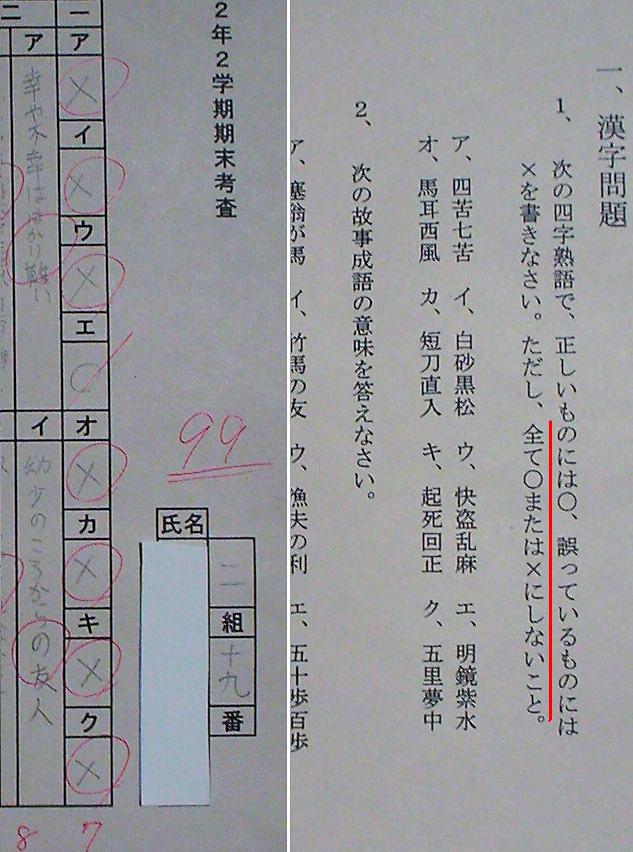 一、漢字問題
1、次の四字熟語で、正しいものには○、誤っているものには
×を書きなさい。ただし、全て○または×にしないこと。
ア、四苦七苦 イ、白砂黒松 ウ、快盗乱麻 エ、明鏡紫水
オ、馬耳西風 カ、短刀直入 キ、起死回正 ク、五里夢中
2、次の故事成語の意味を答えなさい。
ア、塞翁が馬 イ、竹馬の友 ウ、漁夫の利 エ、五十歩百歩
2年2学期期末考査
99
二組十九番
氏名
一
ア ×
イ ×
ウ ×
エ ○
オ ×
カ ×
キ ×
ク ×
7
二
ア 幸や不幸ははかり難い
イ 幼少のころからの友人
8